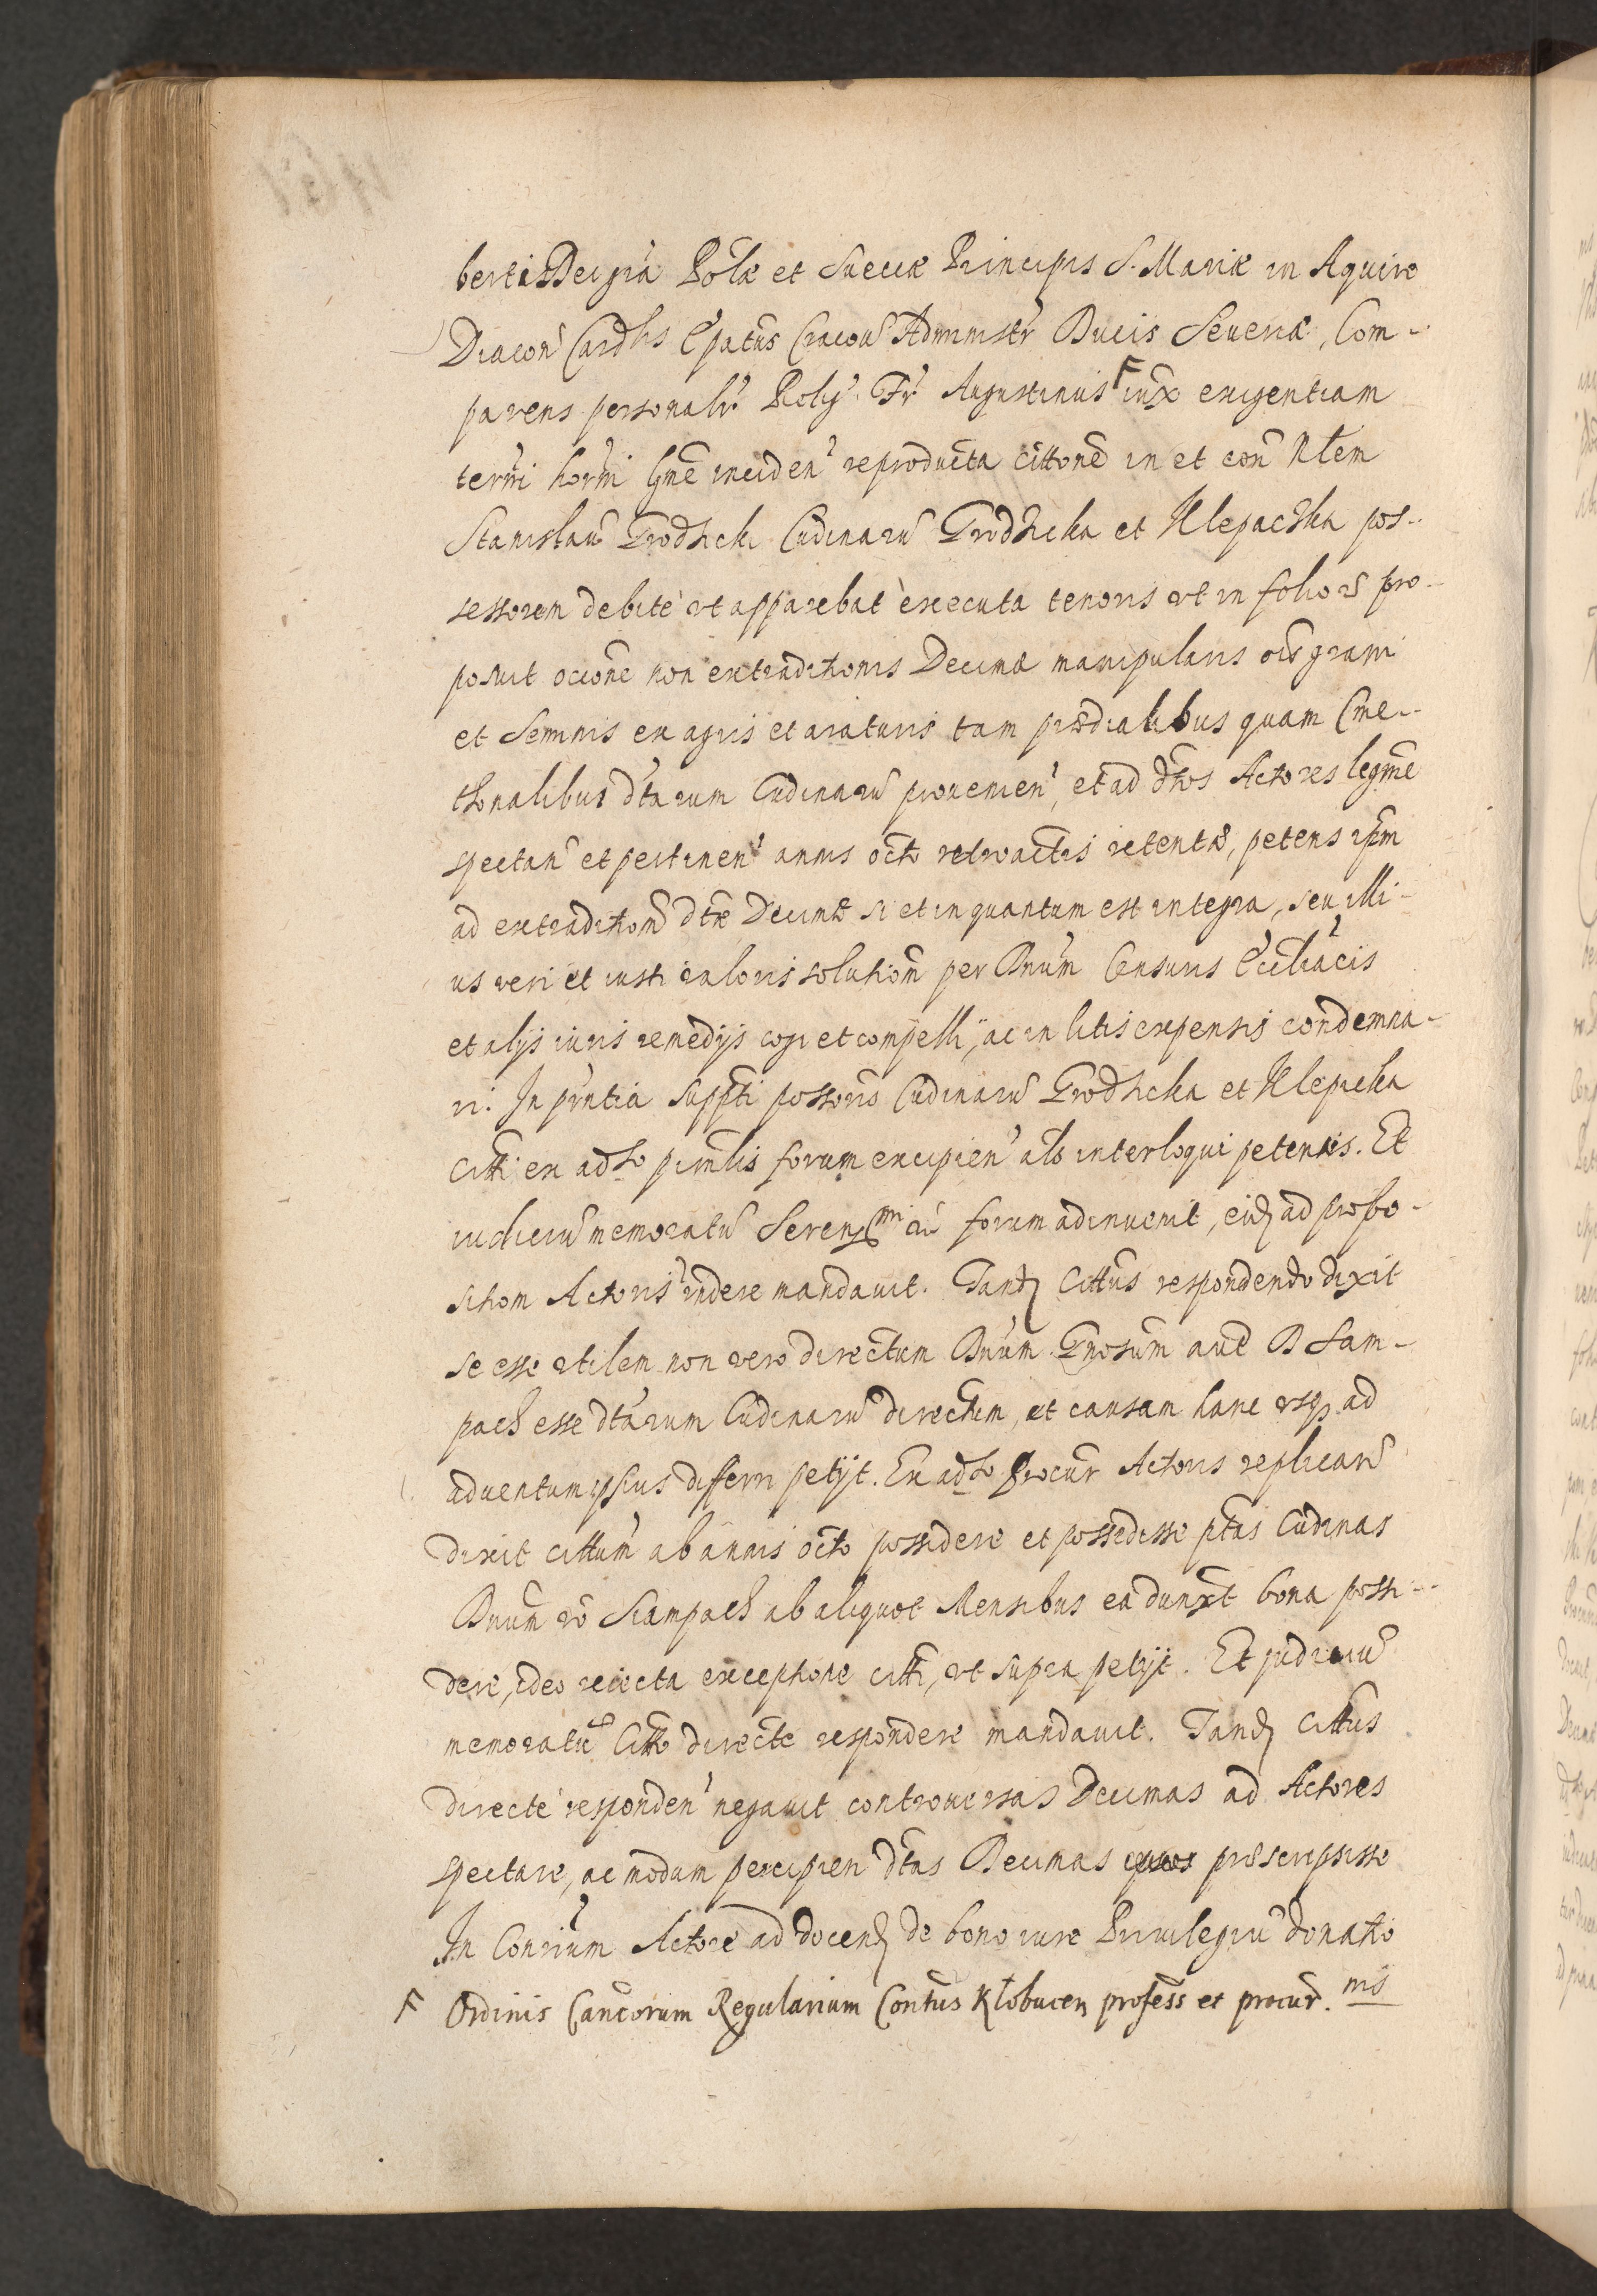 berti Dei gra Polæ et Sueciæ Principis S. Mariæ in Aquiro
Diacon Cardlis Epatus Cracou Administr Ducis Seueriæ, Com-
parens personalr Relig. Fr Augustinus F iux exigentiam
termi horni hme inciden reproducta cittone in et con Nlem
Stanislau Grodzicki Cudinaru Grodzicka et Klepaczka pos-
sessorem debitè vt apparebat èxecuta tenoris vt in folio rs pro-
posuit occone non extraditionis Decimæ manipularis ois grani
et Seminis ex agris et araturis tam prædialibus quam Cme-
thonalibus dtarum Cudinaru prouenien, et ad dtos Actores legme
spectan et pertinen annis octo retroactis retentæ, petens ipm
ad extraditiom dtæ Decimæ si et in quantum est integra, seu illi-
us veri et iusti valoris solutiom per Dnum Censuris Eccliacis
et alijs iuris remedijs cogi et compelli, ac in litis expensis condemna-
ri. In pntia suppti possoris Cudinaru Grodzicka et Klepicka
citti ex adso pimlis forum excipien alo interloqui petentis. Et
iudiciu memoratu Serenssmi cu forum adinuenit, eidq ad propo-
sitiom Actoris rndere mandauit. Tandq Cittus respondendo dixit
se esse vtilem non vero directum Dnum Gnosum aut D Sam-
pach esse dtarum Cudinaru directum, et causam hanc vsq ad
aduentum ipsius differri petijt. Ex adso Procur Actoris replicans
dixit cittum ab annis octo possidere et possedisse ptas Cudinas
Dnum vo Siampach ab aliquot Mensibus ea dunxt bona possi-
dere, ideo reiecta exceptione citti, vt supra petijt. Et judiciu
memoratu Citto directe respondere mandauit. Tandq cittus
directe responden negauit controuersas Decimas ad Actores
spectare, ac modum percipien dtas Decimas præscripsisse
In Conrium Actore ad docendq de bono iure Priuilegiu donatio
F Ordinis Cancorum Regularium Conūs Kłobucen profess et procur. mś